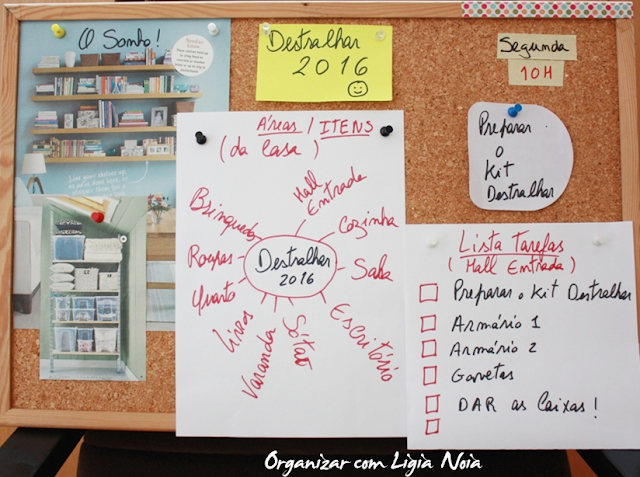 O Sonho!
Destralhar
2016
Segunda
10H
Preparar
o
Kit
Destralhar
Áreas / ITENS
(da Casa)
Brinquedos
Hall
Entrada
Cozinha
Roupas
Destralhar
2016
Sala
Quarto
Livros
Varanda
Sótão
Escritório
Lista Tarefas
(Hall Entrada)
Preparar o Kit Destralhar
Armário 1
Armário 2
Gavetas
DAR as Caixas!
Organizar com Ligia Noia